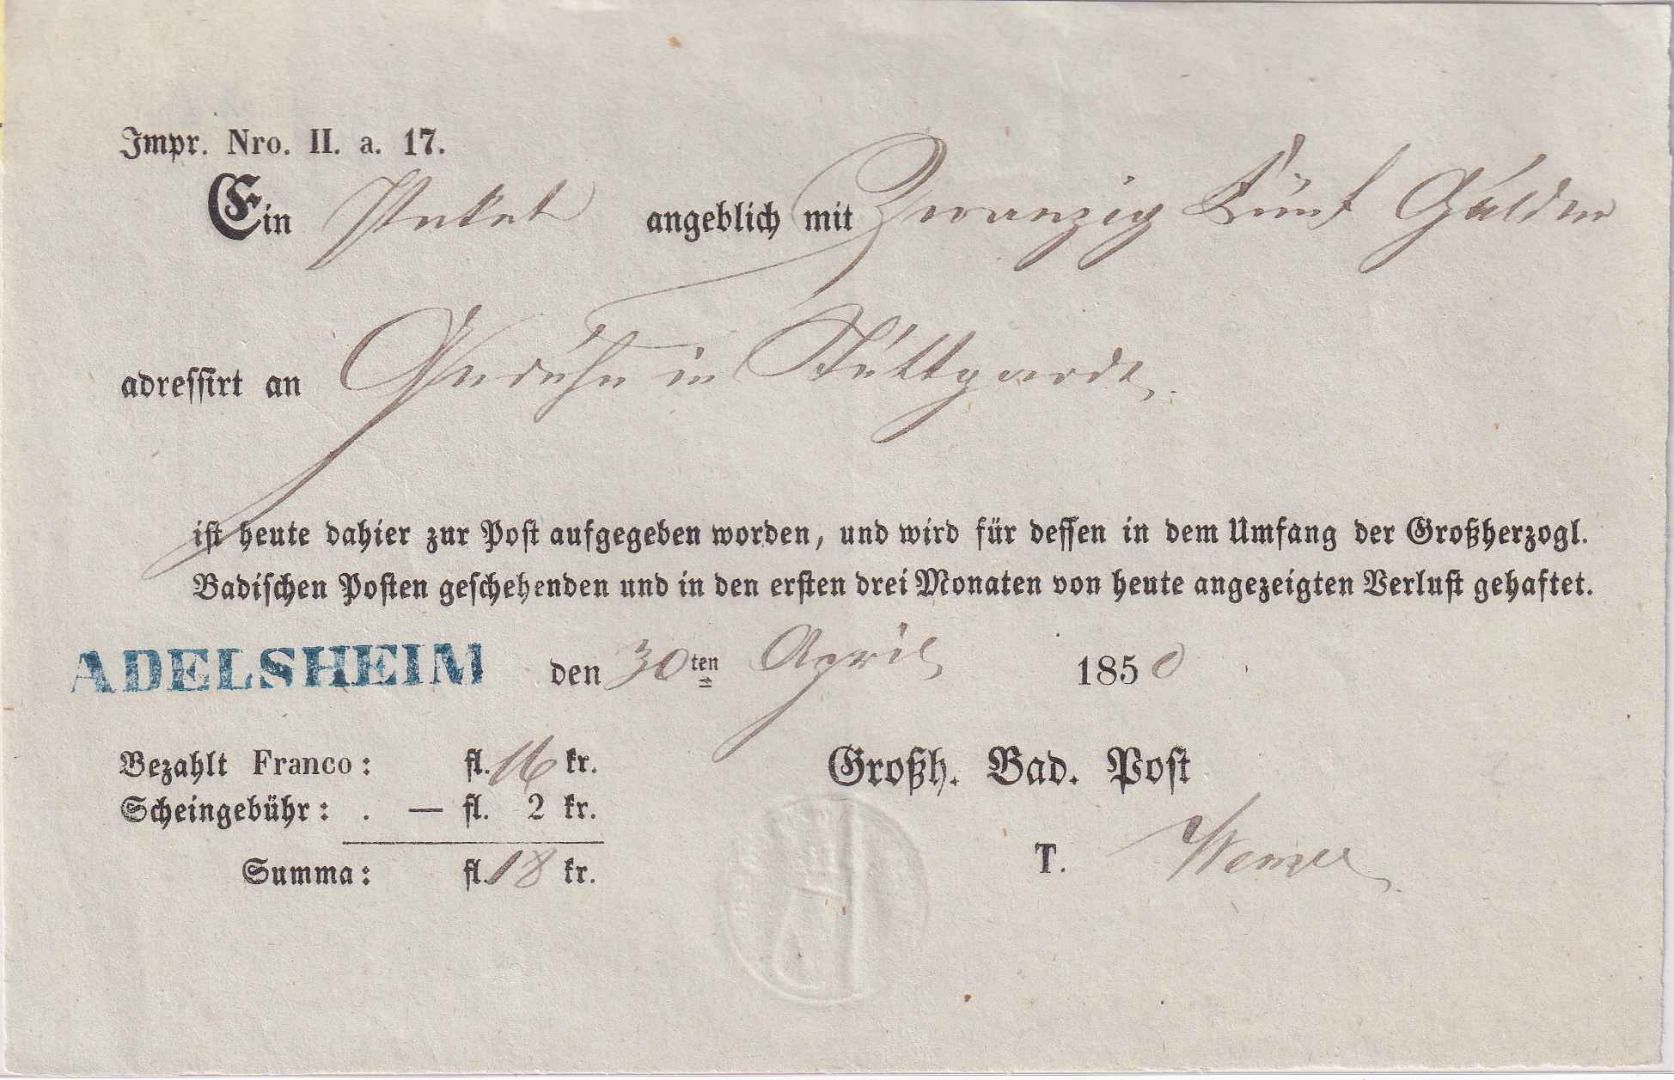 Impr. Nro. II. a. 17.
Ein Paket angeblich mit Zwanzig Fünf Gulden
adressirt an in Stuttgardt,
ist heute dahier zur Post aufgegeben worden, und wird für dessen in dem Umfang der Großherzogl.
Badischen Posten geschehenden und in den ersten drei Monaten von heute angezeigten Verlust gehaftet.
ADELSHEIM den 30ten April 1850
Bezahlt Franco: fl. 16 kr.
Großh. Bad. Post
Scheingebühr: . — fl. 2 kr.
T.
Summa: fl. 18 kr.